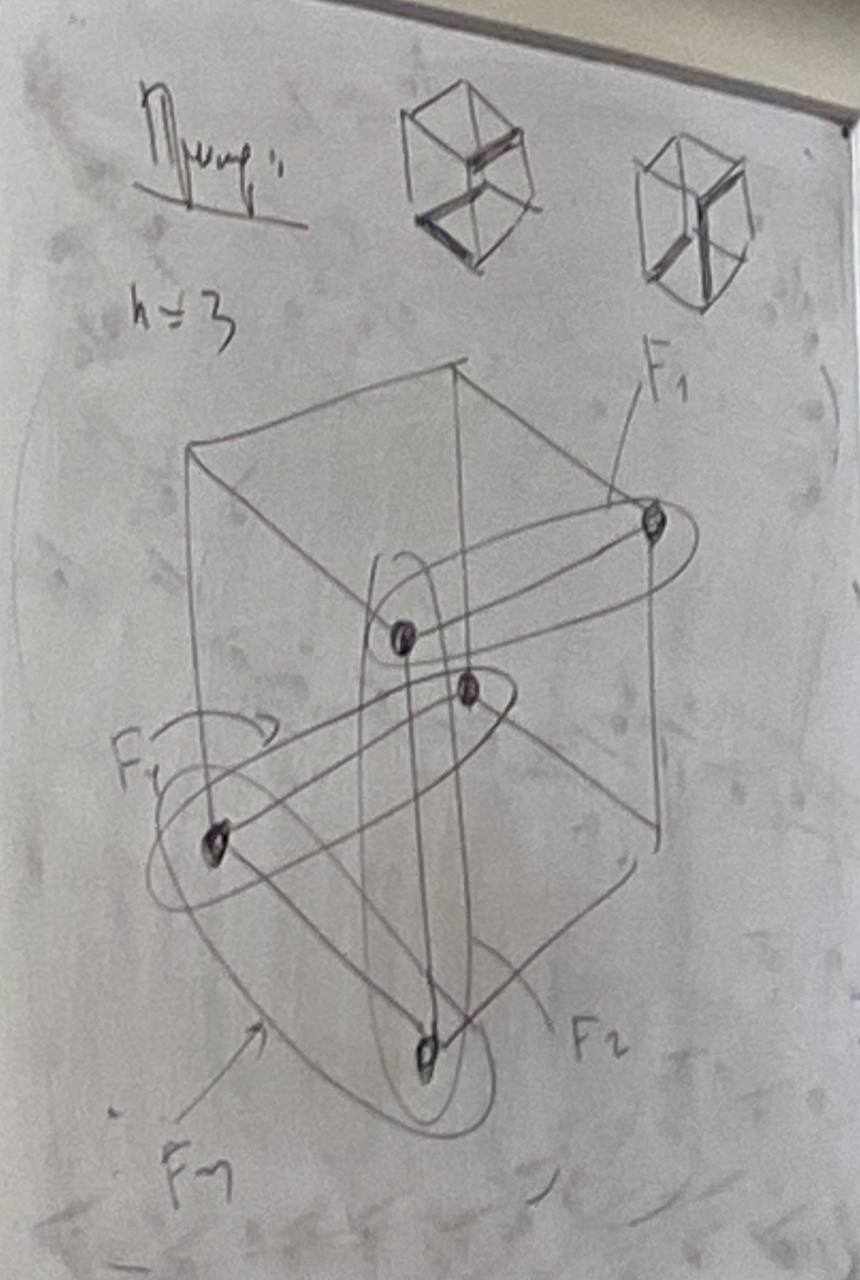 Пример:
n = 3
F₁
F₄
F₂
F₃